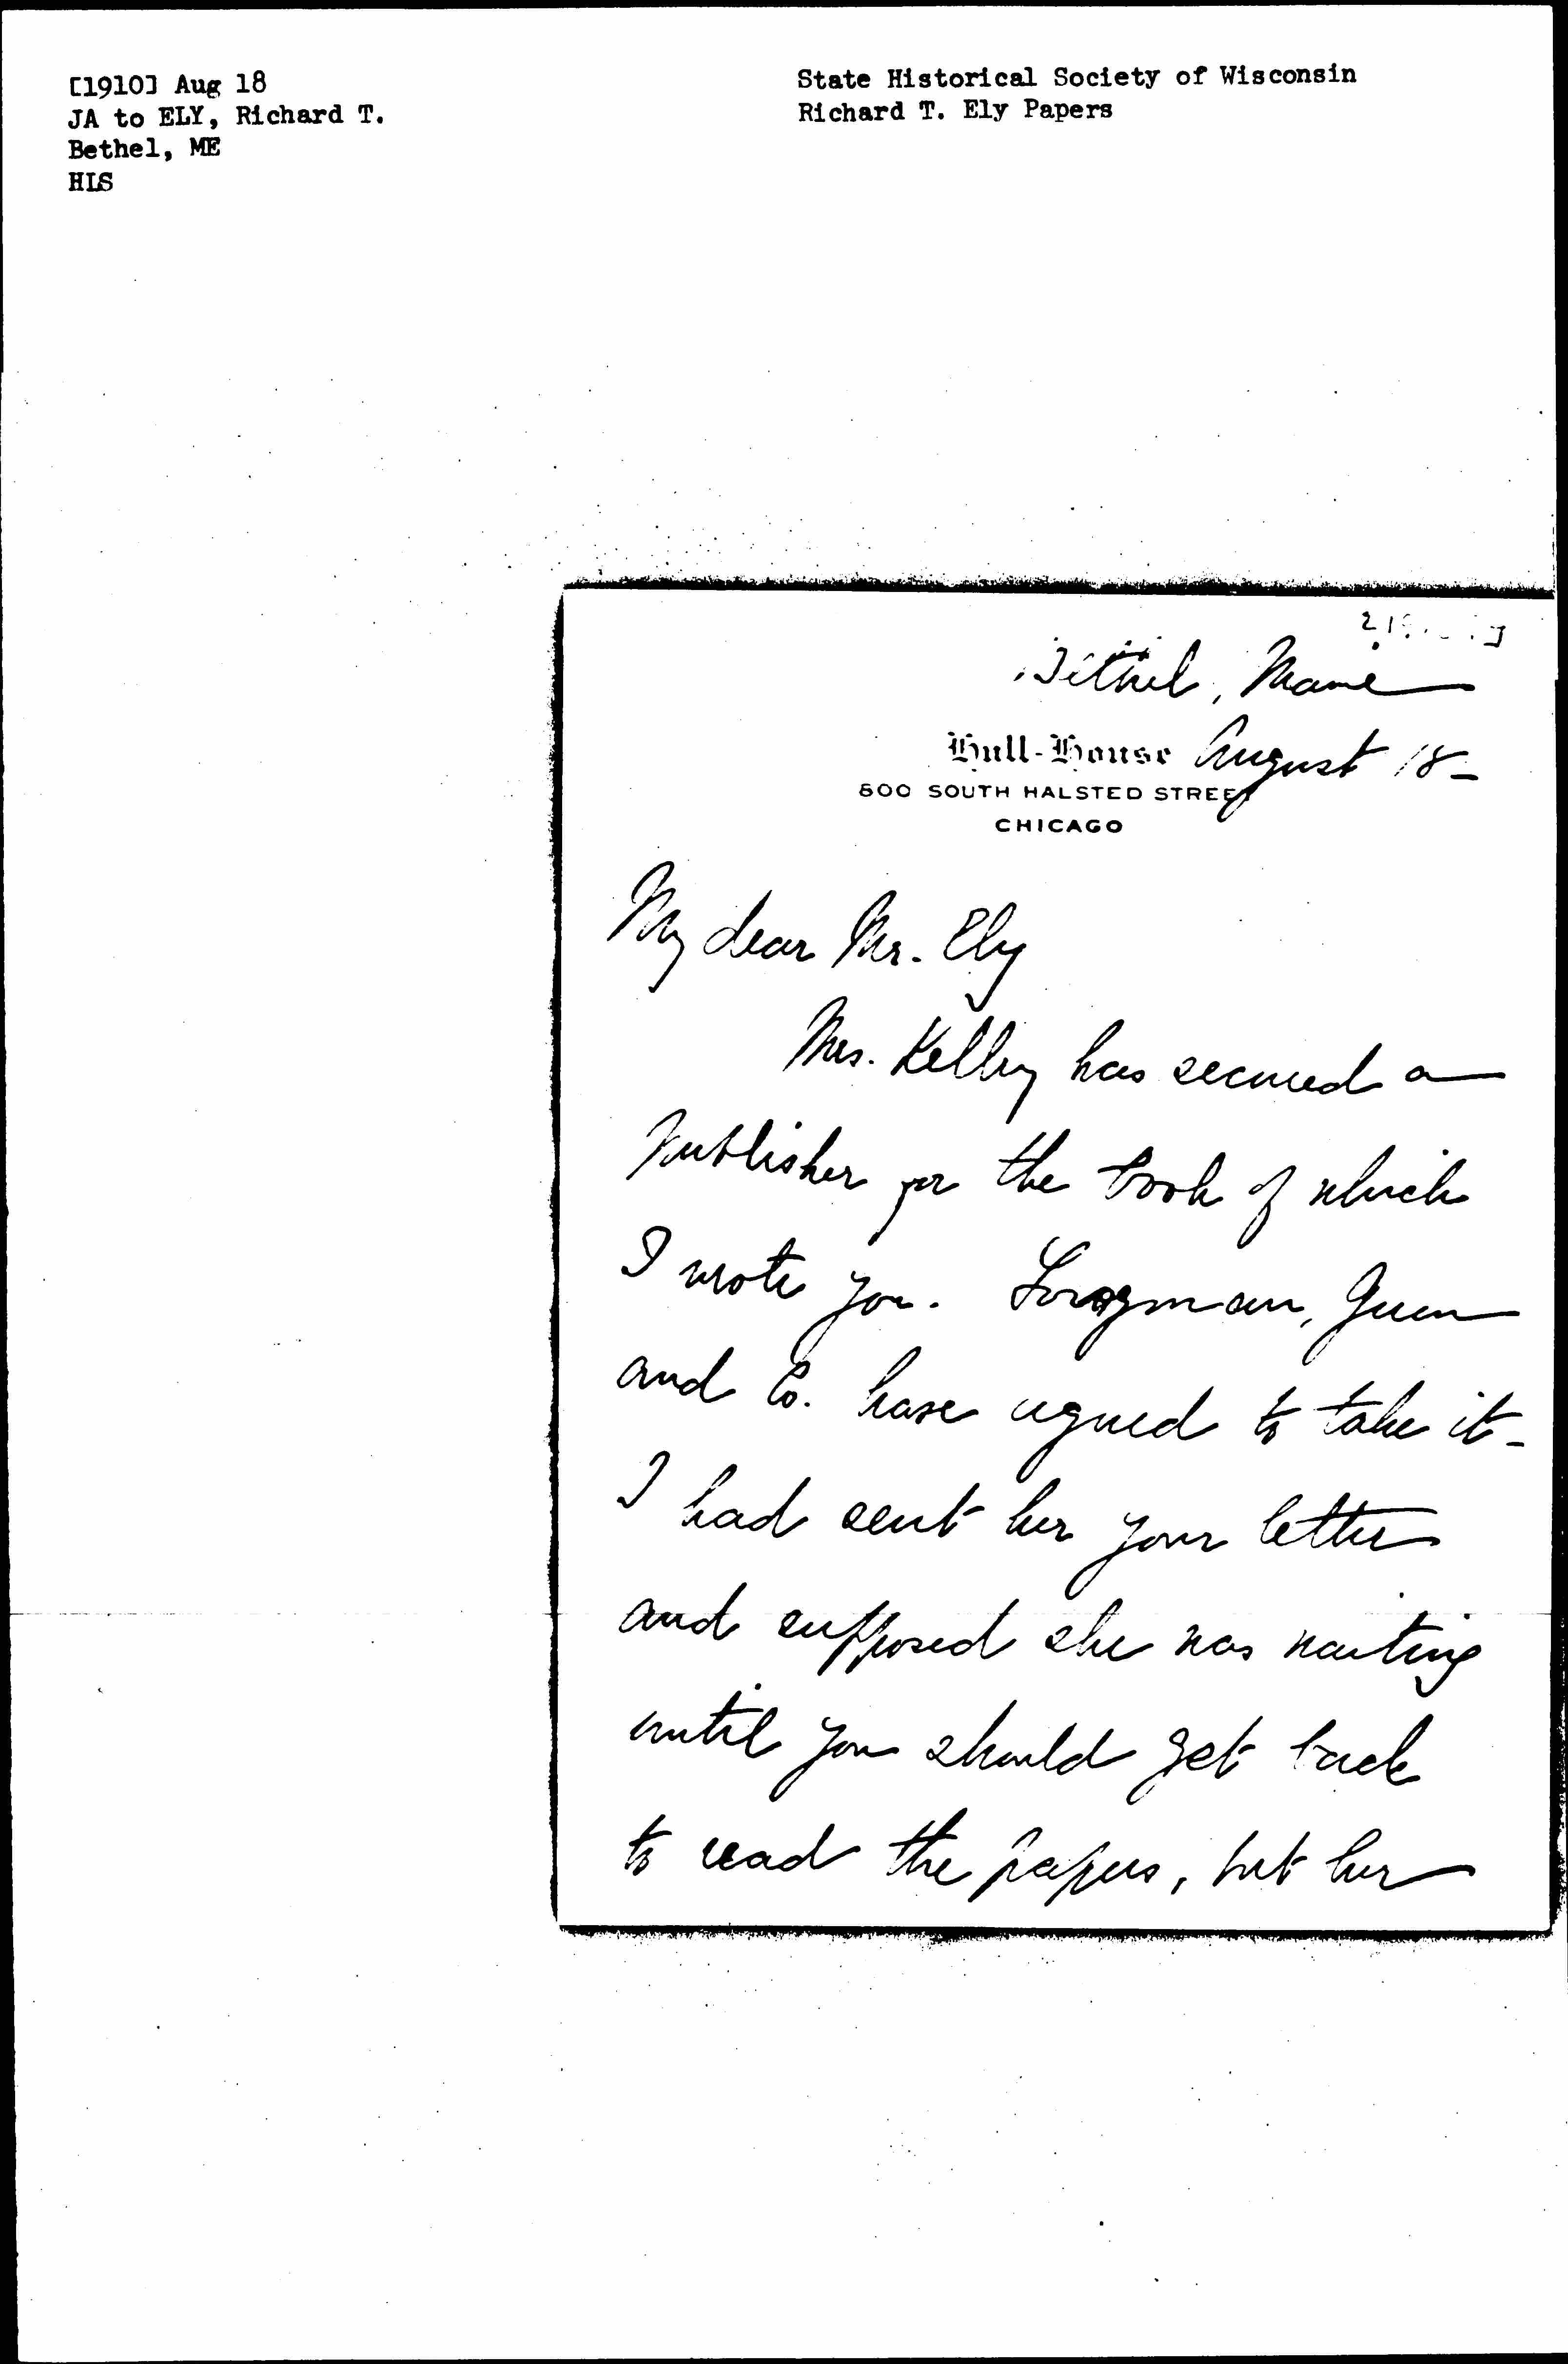 [1910] Aug 18
JA to ELY, Richard T.
Bethel, ME
HLS
State Historical Society of Wisconsin
Richard T. Ely Papers
Bethel, Maine
Hull-House August 18-
800 SOUTH HALSTED STREET
CHICAGO
My dear Mr. Ely
Mrs. Kelley has secured a
publisher for the book of which
I wrote you. Longman, Green
and Co. have agreed to take it-
I had sent her your letter
and supposed she was waiting
until you should get back
to read the papers, but her